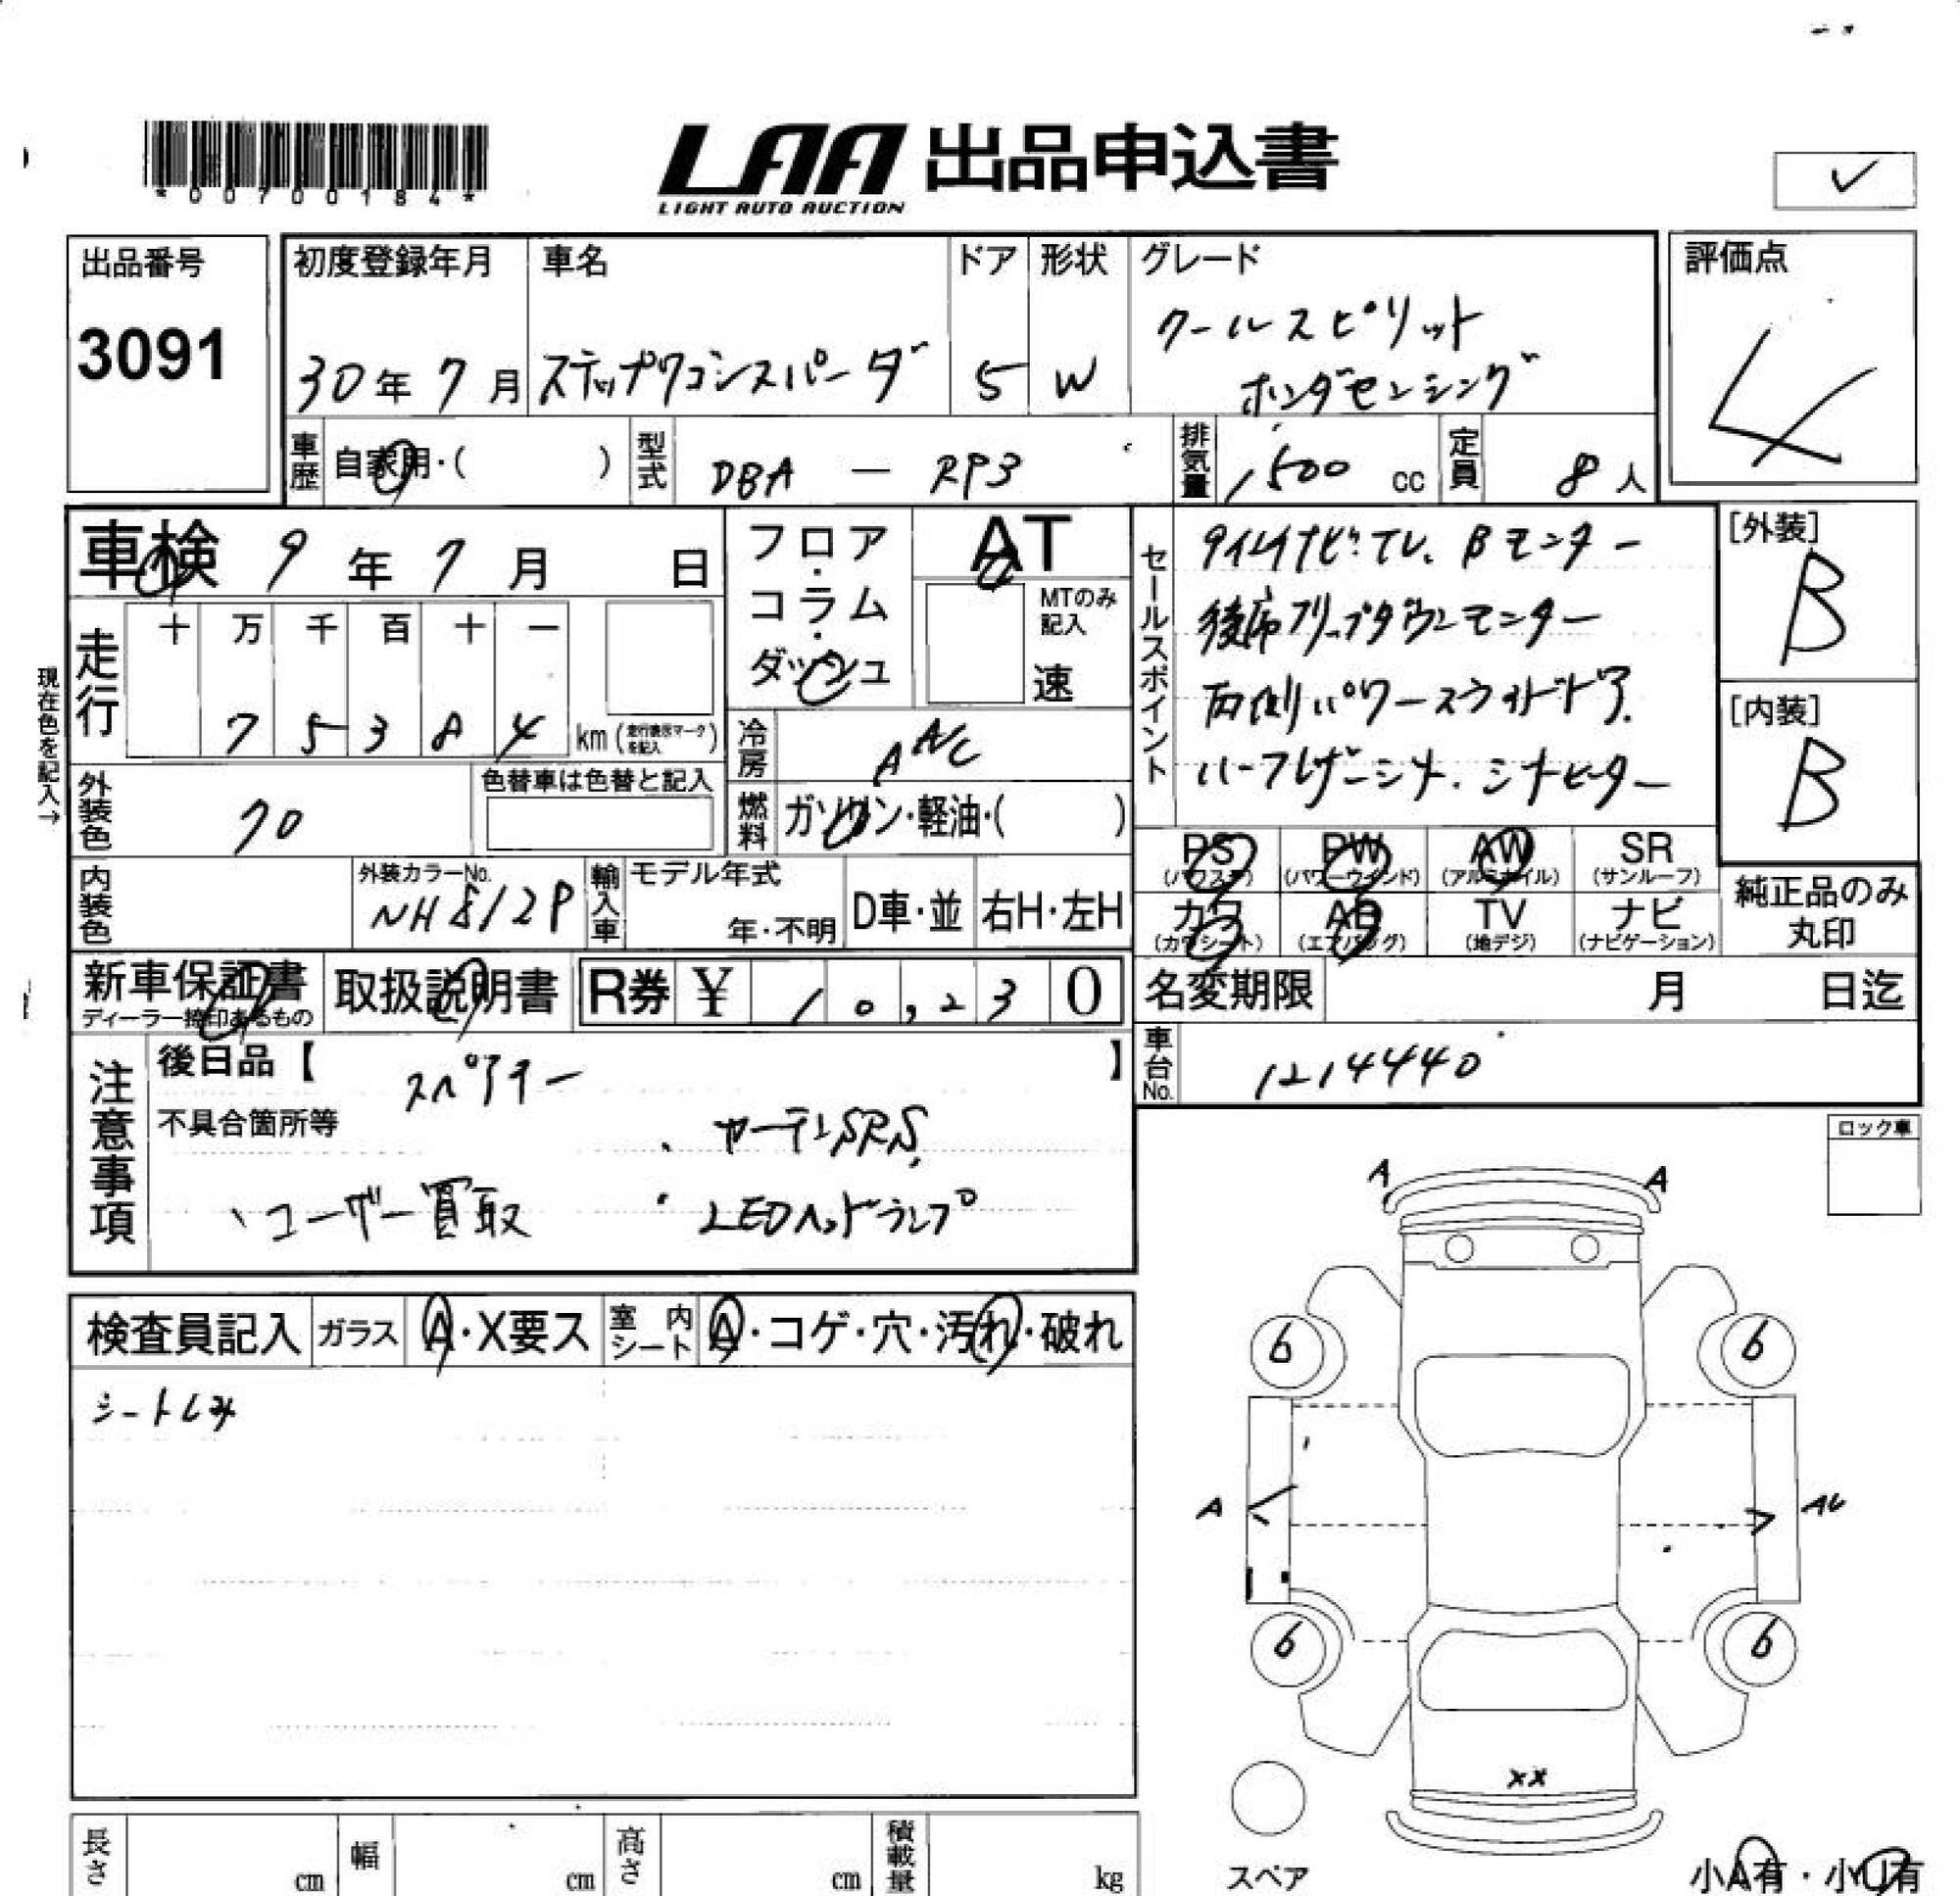 *00700184*
LAA 出品申込書
LIGHT AUTO AUCTION
✓
出品番号
3091
初度登録年月
30年 7月
車名
ステップワゴンスパーダ
ドア
5
形状
W
グレード
クールスピリット
ホンダセンシング
評価点
4
車歴 自家用・( )
型式 DBA — RP3
排気量 1500 cc
定員 8人
車検 9年 7月 日
フロア・コラム・ダッシュ
AT
MTのみ記入
速
走行
十 万 千 百 十 一
7 5 3 8 4 km (走行表示マークを記入)
現在色を記入→
冷房 AAC
燃料 ガソリン・軽油・( )
外装色 クロ
色替車は色替と記入
内装色
外装カラーNo.
NH812P
輸入車
モデル年式
年・不明
D車・並
右H・左H
セールスポイント
後席フリップダウンモニター
両側パワースライドドア.
ハーフレザーシート. シートヒーター
[外装]
B
[内装]
B
PS (パワステ)
PW (パワーウインド)
AW (アルミホイル)
SR (サンルーフ)
カワ (カワシート)
AB (エアバッグ)
TV (地デジ)
ナビ (ナビゲーション)
純正品のみ
丸印
新車保証書
ディーラー捺印あるもの
取扱説明書
R券 ¥ 10,230
名変期限 月 日迄
車台No. 1214440
注意事項
後日品【 スペアキー 】
不具合箇所等
、カーテンSRS
、ユーザー買取
・LEDヘッドランプ
ロック車
検査員記入
ガラス A・X要ス
室内シート A・コゲ・穴・汚れ・破れ
シートしみ
A A
6 6
A AU
6 6
XX
スペア
小A有・小U有
長さ cm
幅 cm
高さ cm
積載量 kg